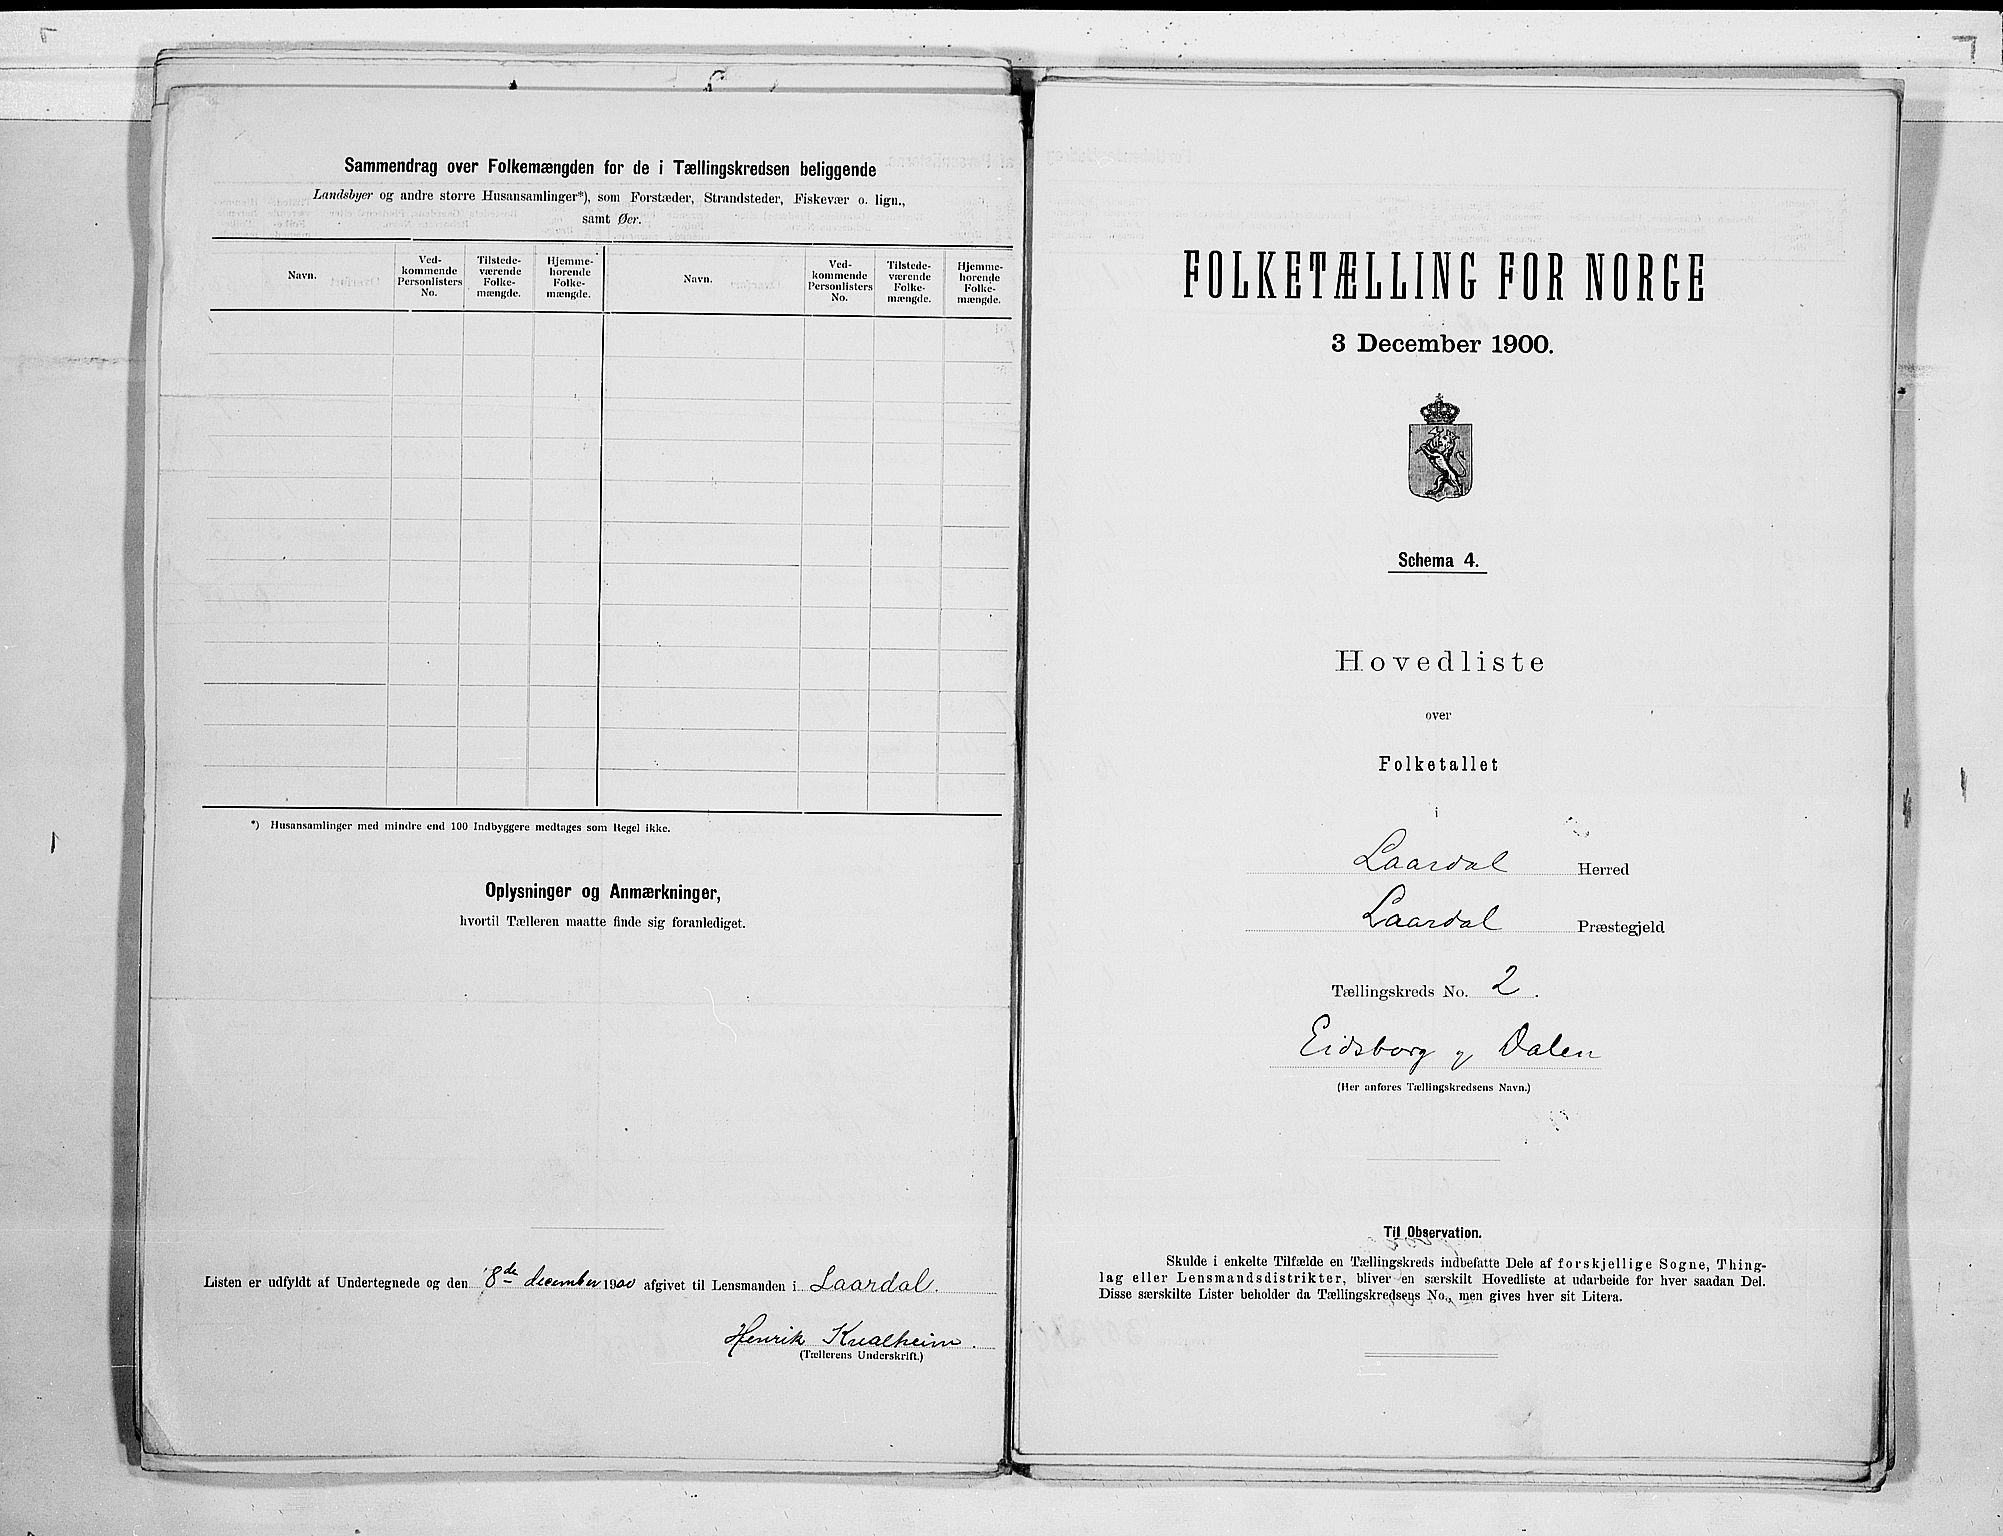 Sammendrag over Folkemængden for de i Tællingskredsen beliggende
Landsbyer og andre større Husansamlinger*), som Forstæder, Strandsteder, Fiskevær o. lign.,
samt Øer.
Navn.
Ved-
kommende
Personlisters
No.
Tilstede-
værende
Folke-
mængde.
Hjemme-
hørende
Folke-
mængde.
Navn.
Ved-
kommende
Personlisters
No.
Tilstede-
værende
Folke-
mængde.
Hjemme-
hørende
Folke-
mængde.
*) Husansamlinger med mindre end 100 Indbyggere medtages som Regel ikke.
Oplysninger og Anmærkninger,
hvortil Tælleren maatte finde sig foranlediget.
Listen er udfyldt af Undertegnede og den 8de december 1900 afgivet til Lensmanden i Laardal.
Henrik Kvalheim.
(Tællerens Underskrift.)
FOLKETÆLLING FOR NORGE
3 December 1900.
Schema 4.
Hovedliste
over
Folketallet
i
Laardal Herred
Laardal Præstegjeld
Tællingskreds No. 2.
Eidsborg og Dalen
(Her anføres Tællingskredsens Navn.)
Til Observation.
Skulde i enkelte Tilfælde en Tællingskreds indbefatte Dele af forskjellige Sogne, Thing-
lag eller Lensmandsdistrikter, bliver en særskilt Hovedliste at udarbeide for hver saadan Del.
Disse særskilte Lister beholder da Tællingskredsens No., men gives hver sit Litera.